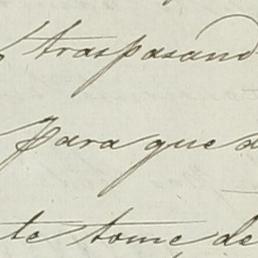 traspasand
para que
te tome de